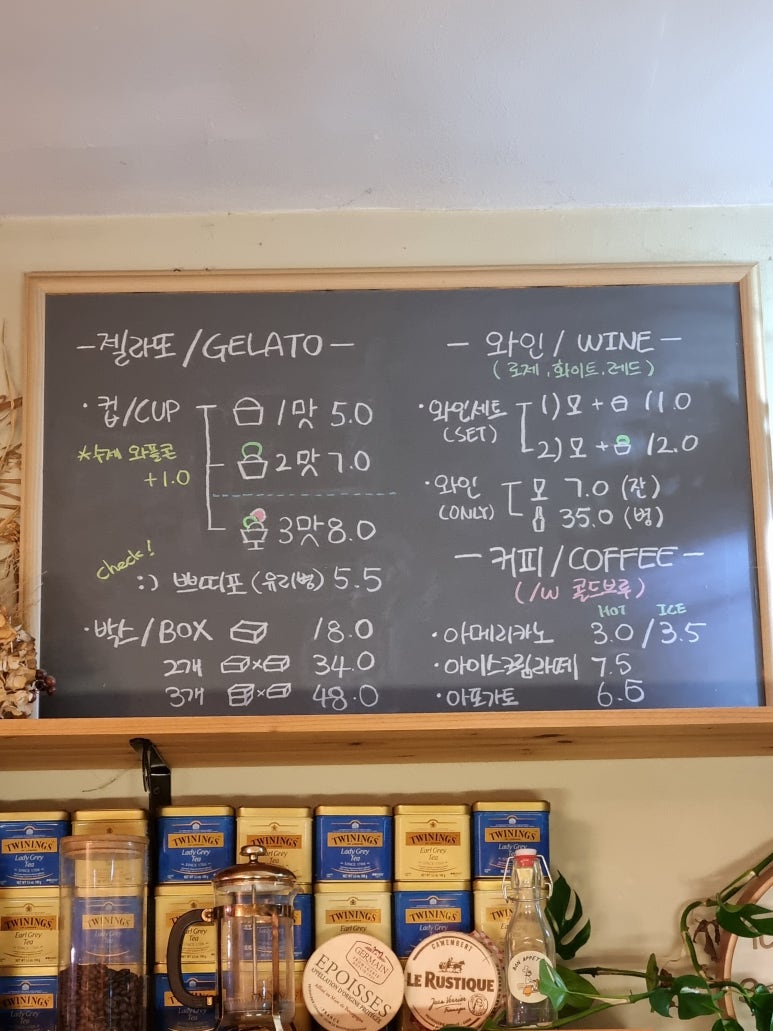 -젤라또/GELATO-
·컵/CUP 1맛 5.0
*수제 와플콘
+1.0
2맛 7.0
3맛 8.0
check!
:) 쁘띠포(유리병) 5.5
·박스/BOX 18.0
2개 × 34.0
3개 × 48.0
- 와인/WINE-
(로제,화이트,레드)
·와인세트
(SET)
1) 모 + 11.0
2) 모 + 12.0
·와인
(ONLY)
모 7.0 (잔)
35.0 (병)
-커피/COFFEE-
(/W 콜드브루)
HOT ICE
·아메리카노 3.0/3.5
·아이스크림라떼 7.5
·아포가토 6.5
TWININGS
Lady Grey
Tea
TWININGS
Earl Grey
Tea
TWININGS
Lady Grey
Tea
TWININGS
Earl Grey
Tea
TWININGS
Lady Grey
Tea
TWININGS
Earl Grey
TWININGS
TWININGS
Earl Grey
TWININGS
Lady Grey
TWININGS
GERMAIN
EPOISSES
APPELLATION D'ORIGINE PROTÉGÉE
CAMEMBERT
LE RUSTIQUE
BON APPETIT